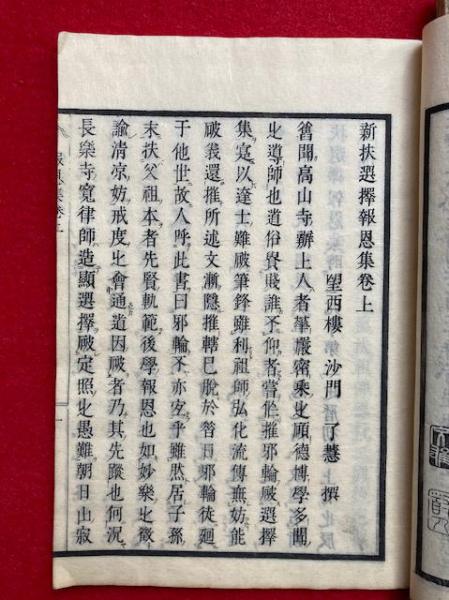 新扶選擇報恩集卷上
望西樓 沙門 了慧 撰
舊聞高山寺辨上人者華嚴密乘㞢碩德博學多聞
㞢導師也道俗貴賤誰不仰者嘗作摧邪輪破選擇
集寔以逢士難破筆鋒雖利祖師弘化流傳無妨能
破義還推所述文漸隱摧轄已脫於昝日邪輪徒迴
于他世故人呼此書曰邪輪不亦宜乎雖然居子孫
末扶父祖本者先賢軌範後學報恩也如妙樂㞢徵
諭清凉妨戒度㞢會通道因破者乃其先蹤也何況
長樂寺寬律師造顯選擇破定照㞢愚難朝日出寂
報恩集卷上
一